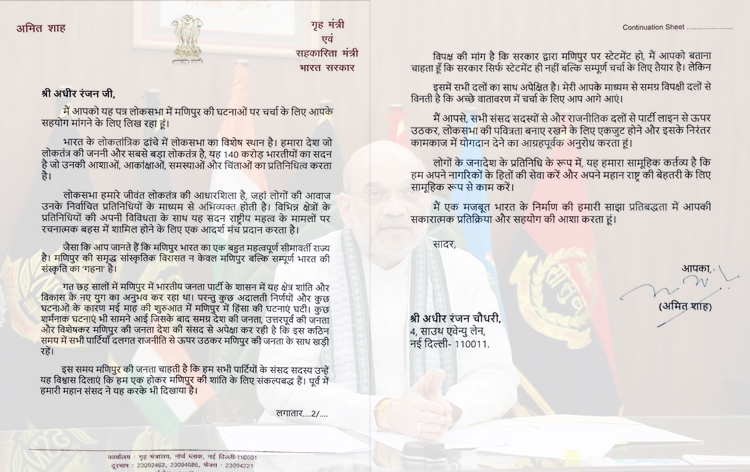 अमित शाह
गृह मंत्री
एवं
सहकारिता मंत्री
भारत सरकार
श्री अधीर रंजन जी,
मैं आपको यह पत्र लोकसभा में मणिपुर की घटनाओं पर चर्चा के लिए आपके
सहयोग मांगने के लिए लिख रहा हूं।
भारत के लोकतांत्रिक ढांचे में लोकसभा का विशेष स्थान है। हमारा देश जो
लोकतंत्र की जननी और सबसे बड़ा लोकतंत्र है, यह 140 करोड़ भारतीयों का सदन
है जो उनकी आशाओं, आकांक्षाओं, समस्याओं और चिंताओं का प्रतिनिधित्व करता
है।
लोकसभा हमारे जीवंत लोकतंत्र की आधारशिला है, जहां लोगों की आवाज
उनके निर्वाचित प्रतिनिधियों के माध्यम से अभिव्यक्त होती है। विभिन्न क्षेत्रों के
प्रतिनिधियों की अपनी विविधता के साथ यह सदन राष्ट्रीय महत्व के मामलों पर
रचनात्मक बहस में शामिल होने के लिए एक आदर्श मंच प्रदान करता है।
जैसा कि आप जानते हैं कि मणिपुर भारत का एक बहुत महत्वपूर्ण सीमावर्ती राज्य
है। मणिपुर की समृद्ध सांस्कृतिक विरासत न केवल मणिपुर बल्कि सम्पूर्ण भारत की
संस्कृति का 'गहना' है।
गत छह सालों में मणिपुर में भारतीय जनता पार्टी के शासन में यह क्षेत्र शांति और
विकास के नए युग का अनुभव कर रहा था। परन्तु कुछ अदालती निर्णयों और कुछ
घटनाओं के कारण मई माह की शुरुआत में मणिपुर में हिंसा की घटनाएं घटी। कुछ
शर्मनाक घटनाएं भी सामने आईं जिसके बाद समग्र देश की जनता, उत्तरपूर्व की जनता
और विशेषकर मणिपुर की जनता देश की संसद से अपेक्षा कर रही है कि इस कठिन
समय में सभी पार्टियाँ दलगत राजनीति से ऊपर उठकर मणिपुर की जनता के साथ खड़ी
रहें।
इस समय मणिपुर की जनता चाहती है कि हम सभी पार्टियों के संसद सदस्य उन्हें
यह विश्वास दिलाएं कि हम एक होकर मणिपुर की शांति के लिए संकल्पबद्ध हैं। पूर्व में
हमारी महान संसद ने यह करके भी दिखाया है।
लगातार....2/....
कार्यालय : गृह मंत्रालय, नॉर्थ ब्लाक, नई दिल्ली-110001
दूरभाष : 23092462, 23094686, फैक्स : 23094221
Continuation Sheet ......................
विपक्ष की मांग है कि सरकार द्वारा मणिपुर पर स्टेटमेंट हो, मैं आपको बताना
चाहता हूँ कि सरकार सिर्फ स्टेटमेंट ही नहीं बल्कि सम्पूर्ण चर्चा के लिए तैयार है। लेकिन
इसमें सभी दलों का साथ अपेक्षित है। मेरी आपके माध्यम से समग्र विपक्षी दलों से
विनती है कि अच्छे वातावरण में चर्चा के लिए आप आगे आएं।
मैं आपसे, सभी संसद सदस्यों से और राजनीतिक दलों से पार्टी लाइन से ऊपर
उठकर, लोकसभा की पवित्रता बनाए रखने के लिए एकजुट होने और इसके निरंतर
कामकाज में योगदान देने का आग्रहपूर्वक अनुरोध करता हूं।
लोगों के जनादेश के प्रतिनिधि के रूप में, यह हमारा सामूहिक कर्तव्य है कि
हम अपने नागरिकों के हितों की सेवा करें और अपने महान राष्ट्र की बेहतरी के लिए
सामूहिक रूप से काम करें।
मैं एक मजबूत भारत के निर्माण की हमारी साझा प्रतिबद्धता में आपकी
सकारात्मक प्रतिक्रिया और सहयोग की आशा करता हूं।
सादर,
आपका,
(अमित शाह)
श्री अधीर रंजन चौधरी,
4, साउथ एवेन्यु लेन,
नई दिल्ली- 110011.